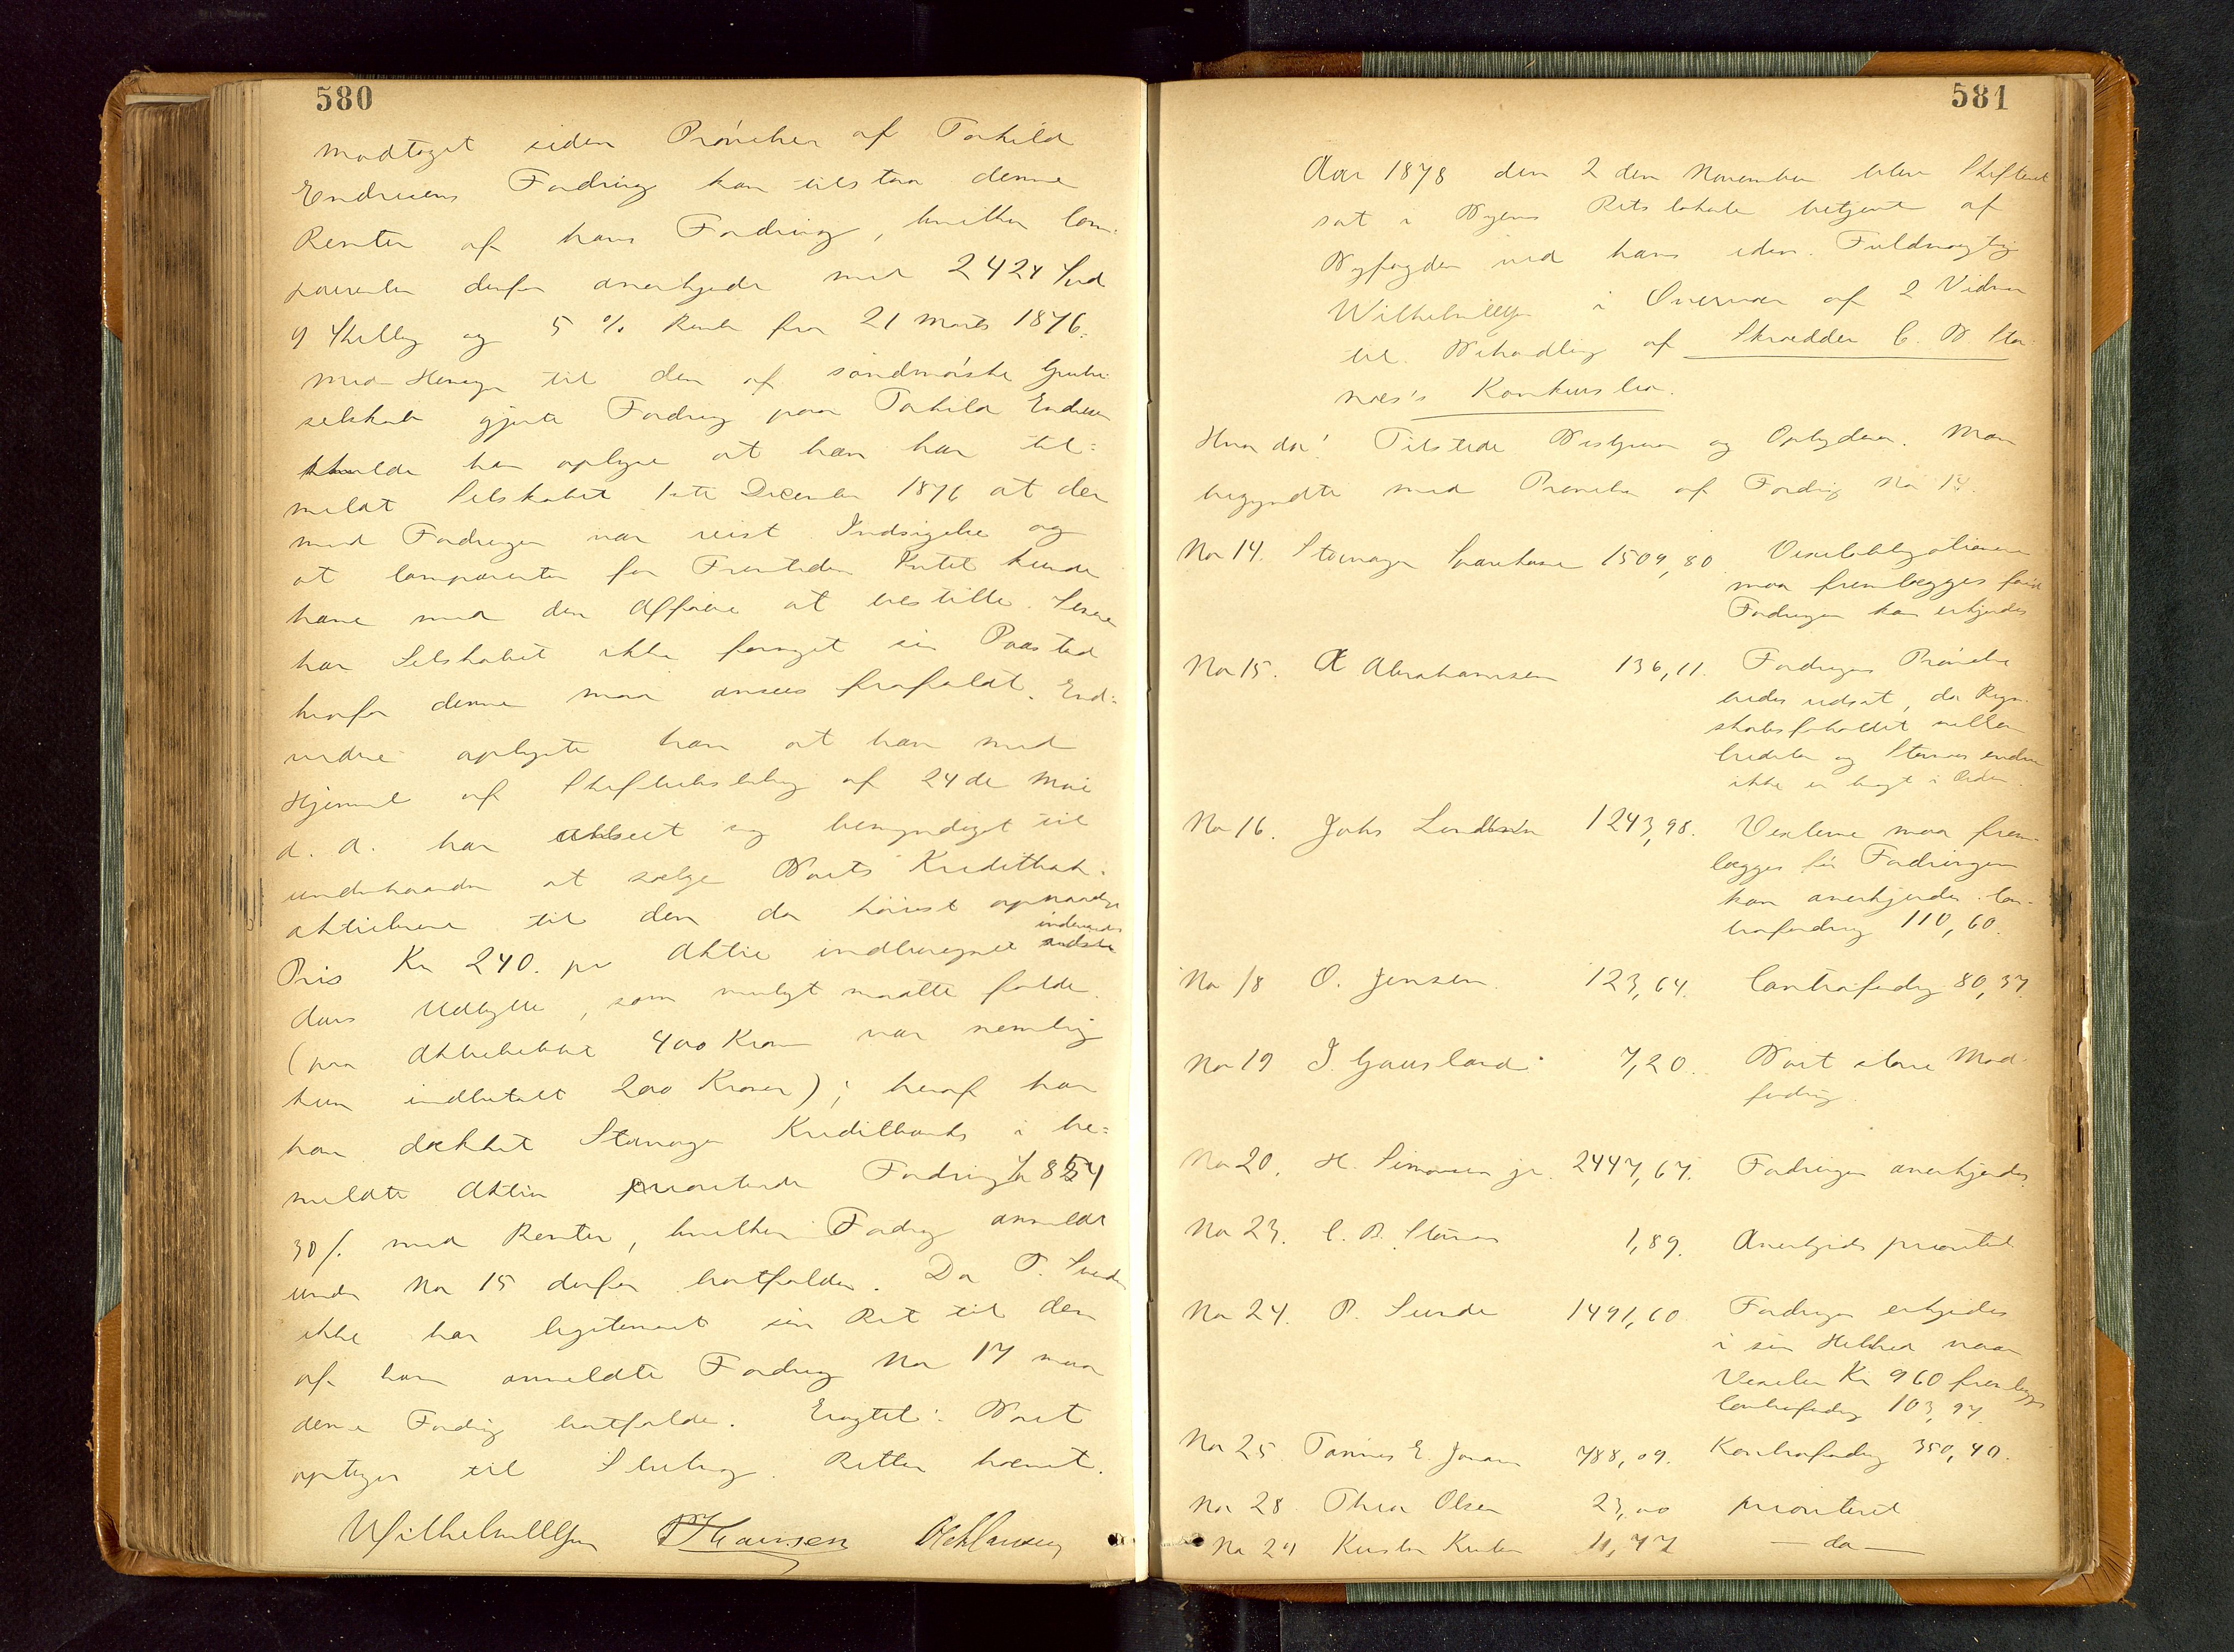 580
modtaget siden Prøvelsen af Torkild
Endresens Fordring kan tilstaa denne
Renter af hans Fordring, hvilken Com-
parenten derfor anerkjende med 2424 Spd
9 Skilling og 5 % Rente fra 21 Marts 1876.
Med Hensyn til den af søndmørske Grube
selskab gjorte Fordring paa Torkild Endresen
skulde han oplyse at han har til-
meldt Selskabet 1ste December 1876 at der
mod Fordringen var reist Indsigelse og
at Comparenten for Fremtiden Intet kunde
have med den Affære at bestille. Senere
har Selskabet ikke foretaget sin Paastand
hvorfor denne maa ansees frafaldt. End-
videre oplyste han at han med
Hjemmel af Skifteslutning af 24de Mai
d. A. har anseet sig bemyndiget til
underhaanden at sælge Boets Kreditbank-
aktier til den da høiest opnaaelige
Pris Kr 240. pr Aktie indberegnet indeværende
Aars Udbytte, som muligt maatte falde.
(paa Aktiebeløbet 400 Kroner var nemlig
kun indbetalt 200 Kroner); heraf har
han dækket Stavanger Kreditbanks i be-
meldte Aktier prioriterede Fordring
30 ß med Renter, hvilken Fordring anmeldt
under No 15 derfor bortfalder. Da T. Svend
ikke har legitimeret sin Ret til den
af ham anmeldte Fordring No 17 maa
denne Fordring bortfalde. Eragtet: Boet
optages til Slutning. Retten hævet.
Wilhelmsen
581
Aar 1878 den 2den November blev Skifteret
sat i Byens Retslokale betjent af
Byfogden ved hans edsv. Fuldmægtig
i Overvær af 2 Vidner
til Behandling af Skrædder C. B. Stør-
næs's Konkursbo.
Hvorda! Tilstede Bestyreren og Opbyderen. Man
begyndte med Prøvelse af Fordring No 14.
No 14. Stavanger Sparekasse 1509,80. Vexelobligationerne
maa fremlægges før
Fordringen kan erkjendes
No 15. A Abrahamsen 136,11. Fordringens Prøvelse
bedes udsat, da Regn-
skabsforholdet mellem
Creditor og Størnæs endnu
ikke er bragt i Orden.
No 16. Johs Lindtner 1243,98. Vexlerne maa frem-
lægges før Fordringen
kan anerkjendes. Con-
trafordring 110,60.
No 18 O. Jensen 123,64. Contrafordring 80,37.
No 19 I. Gausland 7,20. Boet store Mod-
fordring.
No 20. H. Simonsen jr. 2447,67. Fordringen anerkjendes
No 23. C. B. Størnæs 1,89. Anerkjendes prioriteret
No 24. P. Sunde 1491,60. Fordringen erkjendes
i sin Helhed naar
Vexelen Kr 960 fremlægges
Contrafordring 103,97.
No 25 Tønnes E. Jonassen 788,09. Kontrafordring 350,40.
No 28 Thea Olsen 23,00 prioriteret
No 29 11,77 — do —